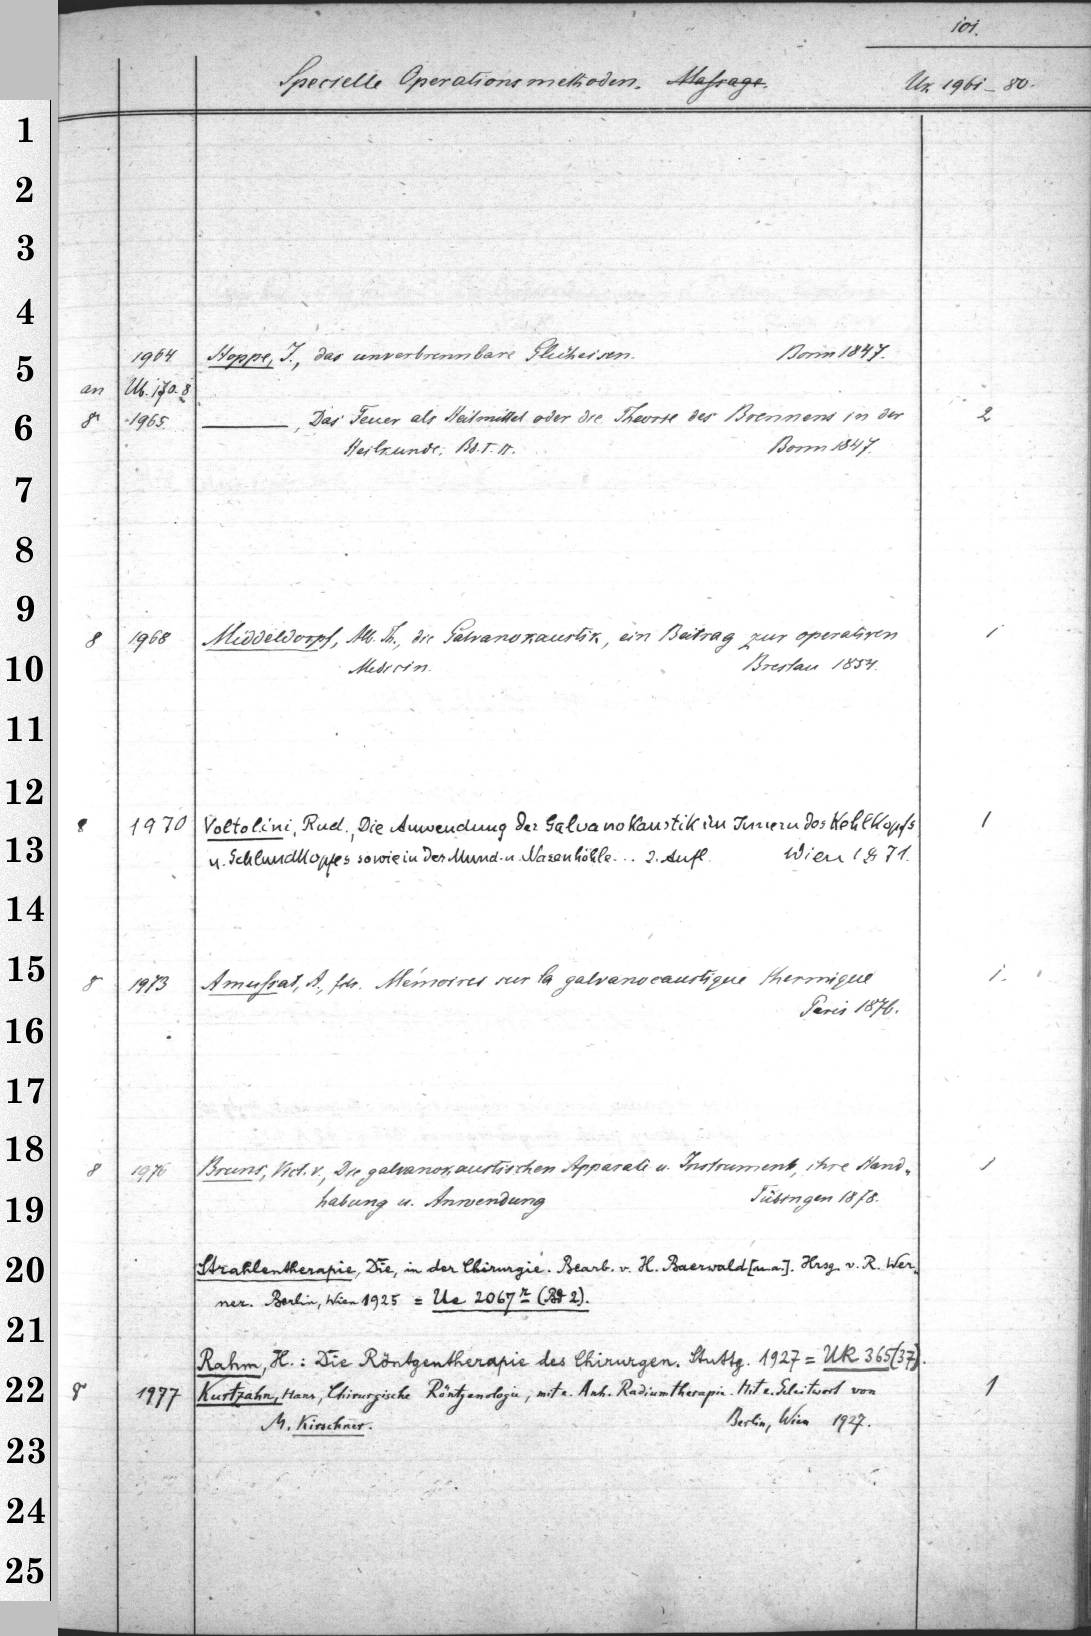 101.
Specielle Operationsmethoden. Massage. Uk 1961-80.
1
2
3
4
1964 Hoppe, J., das unverbrennbare Glüheisen. Bonn 1847.
5
an Ub. 170. 8
6 8° 1965 ———, Das Feuer als Heilmittel oder die Theorie des Brennens in der 2
Heilkunde. Bd. I. II. Bonn 1847.
7
8
9
8 1968 Middeldorpf, Alb. Th., die Galvanokaustik, ein Beitrag zur operativen 1
10 Medicin. Breslau 1854.
11
12
8 1970 Voltolini, Rud., Die Anwendung der Galvanokaustik im Innern des Kehlkopfs 1
13 u. Schlundkopfes sowie in der Mund- u. Nasenhöhle... 2. Aufl. Wien 1871.
14
15 8° 1973 Amussat, A., fils. Mémoires sur la galvanocaustique thermique 1.
Paris 1876.
16
17
18
8 1976 Bruns, Vict. v., Die galvanokaustischen Apparate u. Instrumente, ihre Hand- 1
19 habung u. Anwendung Tübingen 1878.
20 Strahlentherapie, Die, in der Chirurgie. Bearb. v. H. Baerwald [u. a.]. Hrsg. v. R. Wer-
ner. Berlin, Wien 1925 = Ue 2067 r (Bd 2).
21
Rahm, H.: Die Röntgentherapie des Chirurgen. Stuttg. 1927 = UK 365 (37).
22 8° 1977 Kurtzahn, Hans, Chirurgische Röntgenologie, mit e. Anh. Radiumtherapie. Mit e. Geleitwort von 1
M. Kirschner. Berlin, Wien 1927.
23
24
25